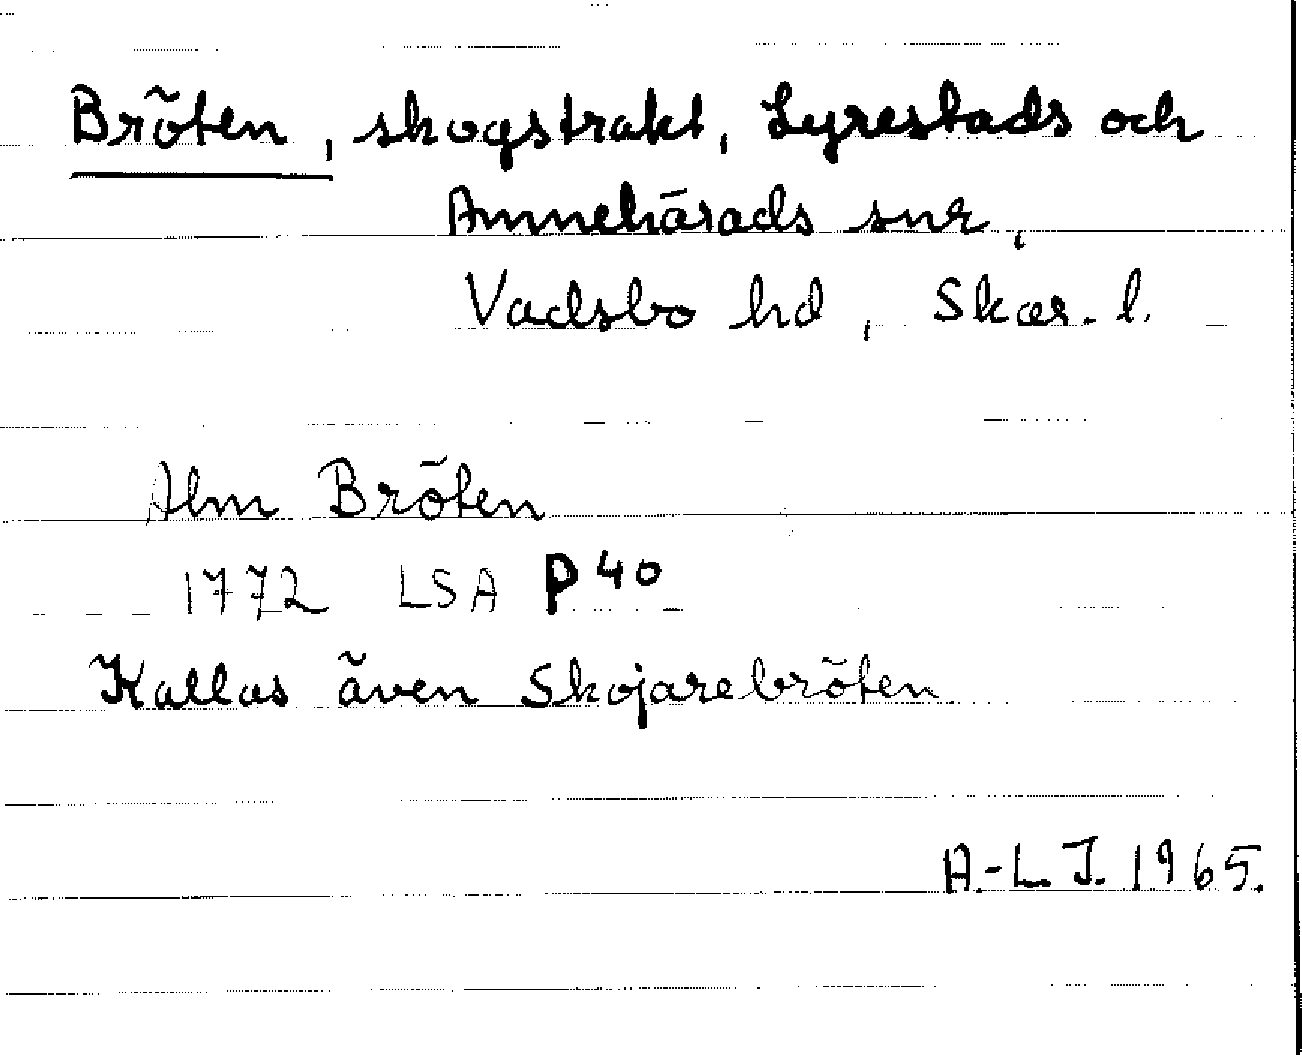 Bröten, skogstrakt, Lyrestads och
Amnehärads snr,
Vadsbo hd, Skar. l.
Alm Bröten
1772 LSA P 40
Kallas även Skojarebröten
A.-L. J. 1965.